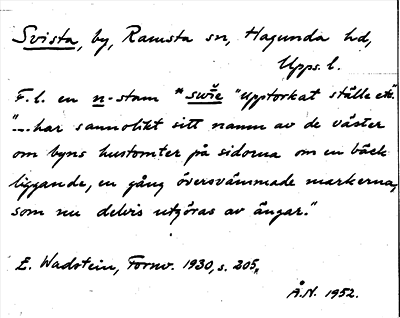 Svista, by, Ramsta sn, Hagunda hd,
Upps. l.
F. l. en n-stam * "Upptorkat ställe etc".
"... har sannolikt sitt namn av de väster
om byns hustomter på sidorna om en bäck
liggande, en gång översvämmade markerna,
som nu delvis utgöras av ängar."
E. Wadstein, Fornv. 1930, s. 205,,
Å.N. 1952.